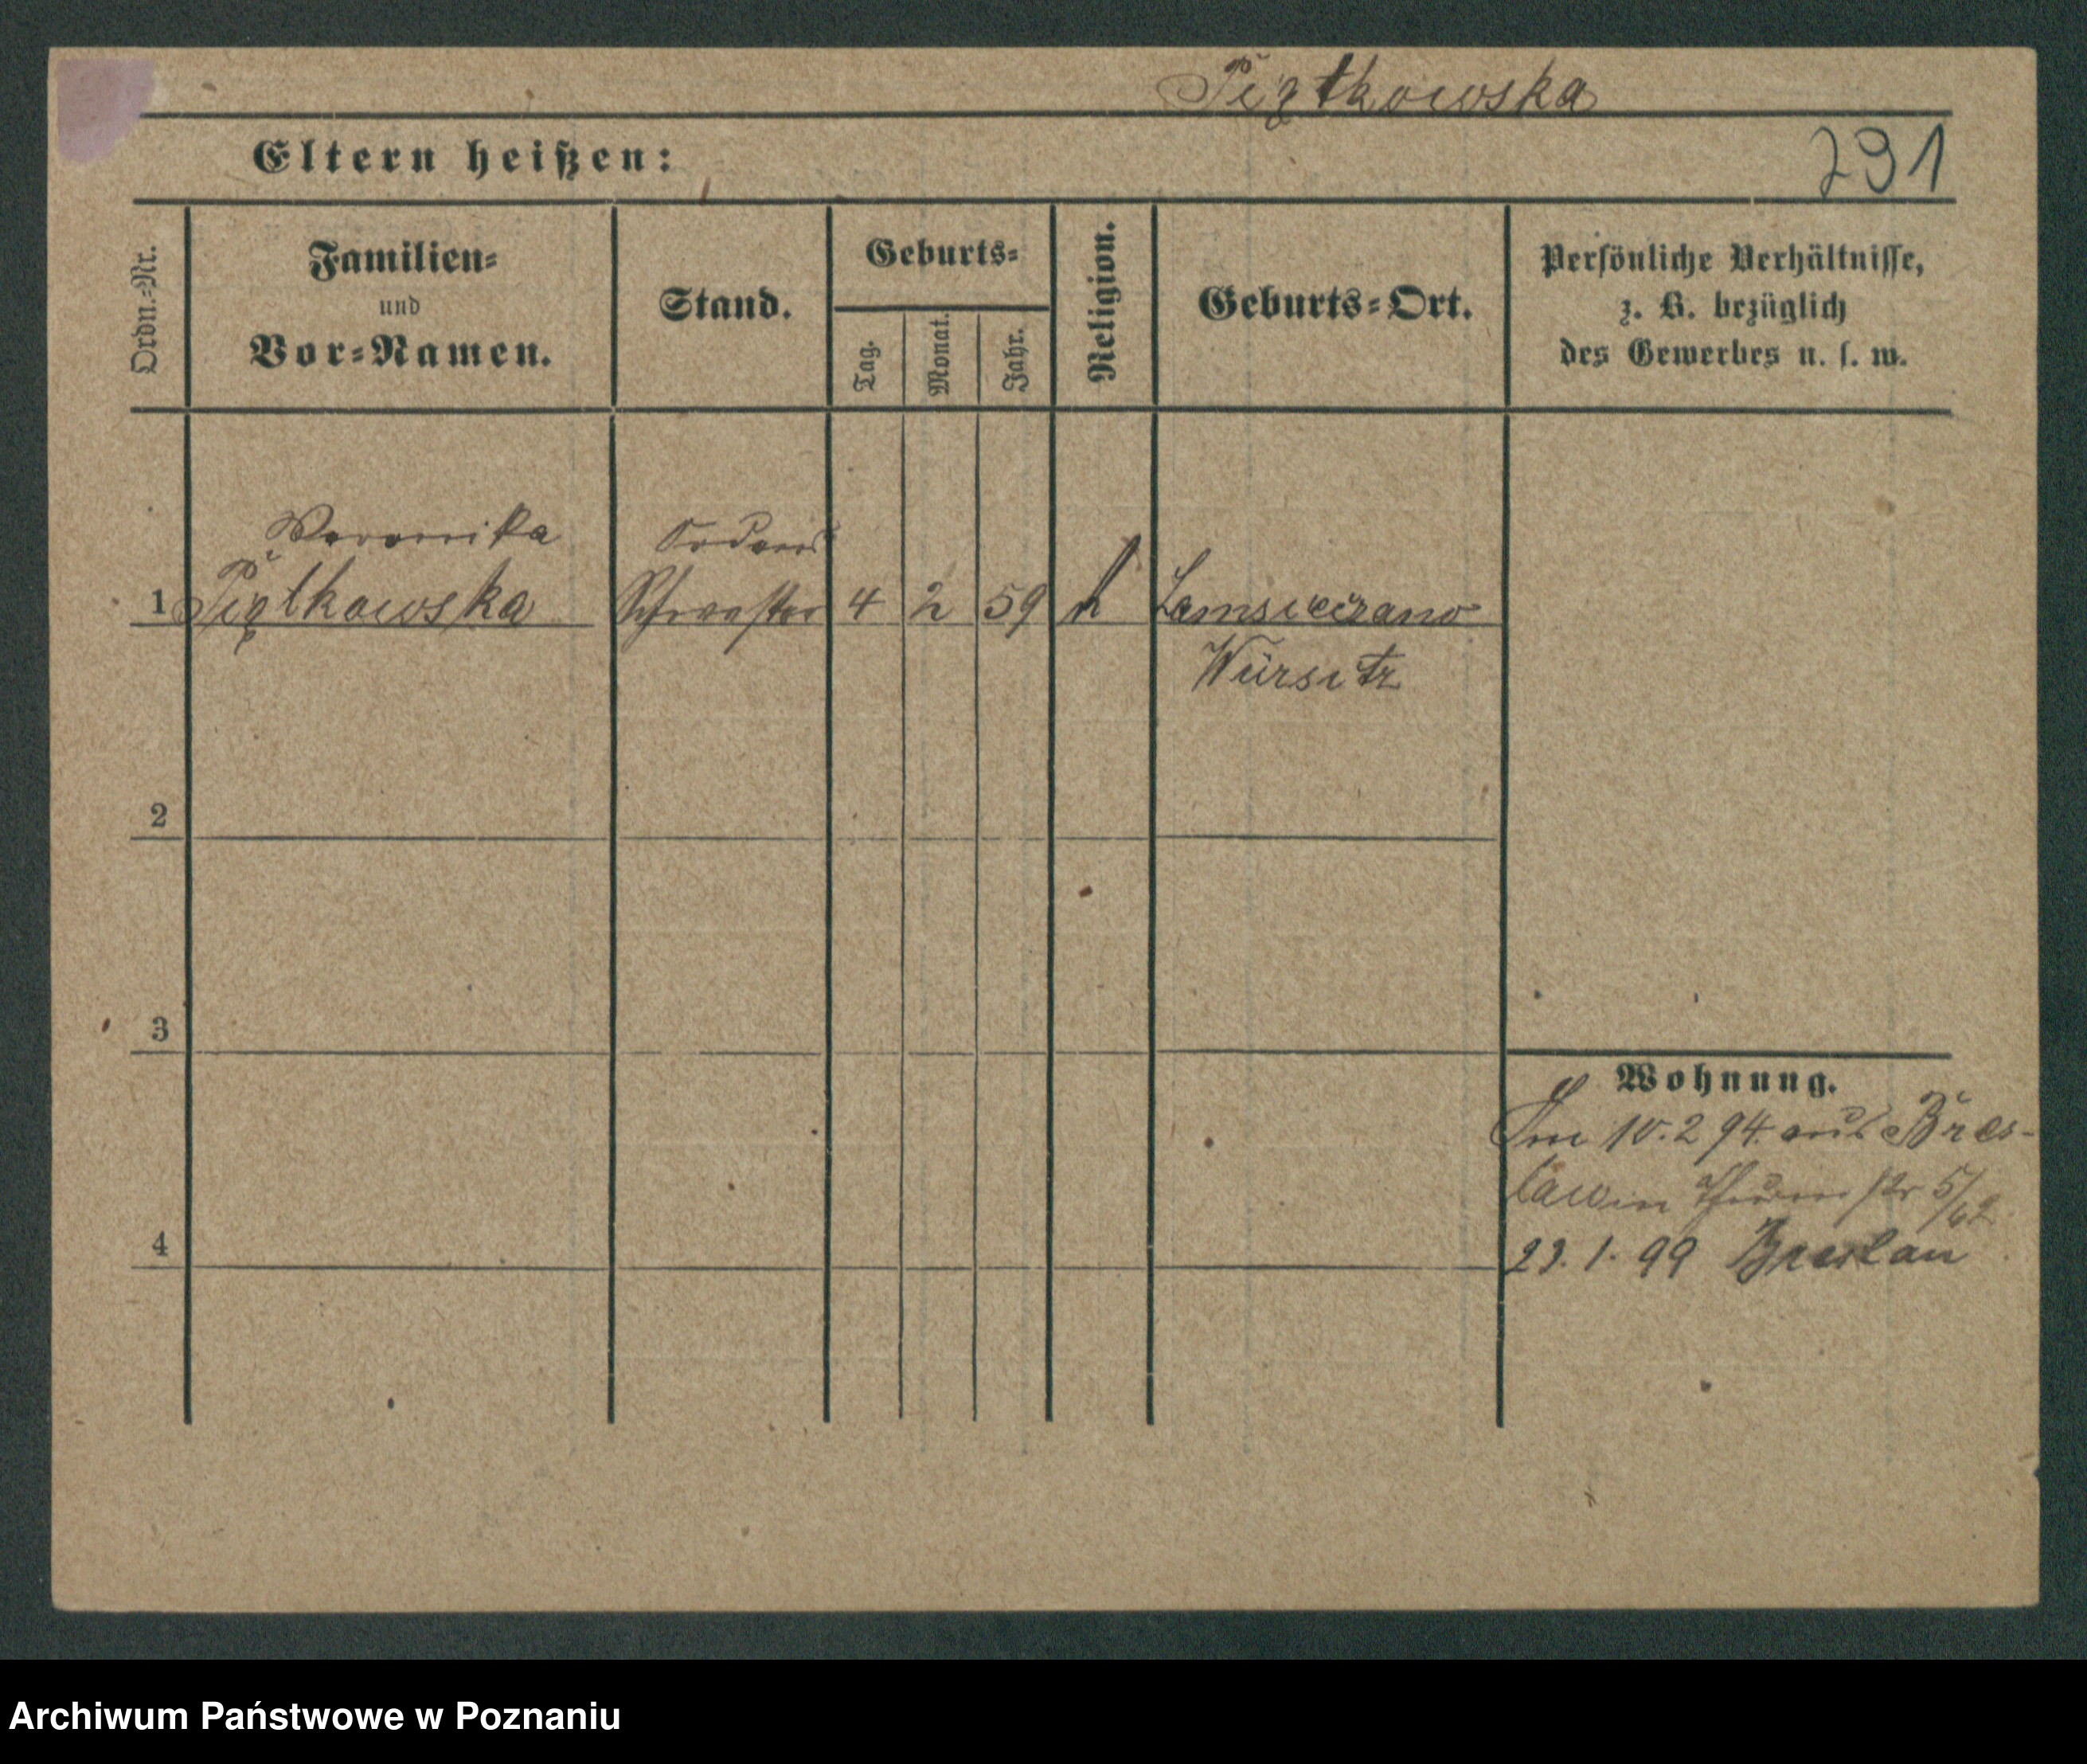 Piątkowska
Eltern heißen:
291
Ordn.=Nr.
Familien=
und
Vor=Namen.
Stand.
Geburts=
Tag.
Monat.
Jahr.
Religion.
Geburts=Ort.
Persönliche Verhältnisse,
z. B. bezüglich
des Gewerbes u. s. w.
Veronika Ordens
1 Piątkowska Schwester 4 2 59 k
Wirsitz
2
3
4
Wohnung.
Am 10.2 94 aus Bres-
lau in 5/62
23. 1. 99 Breslau
Archiwum Państwowe w Poznaniu